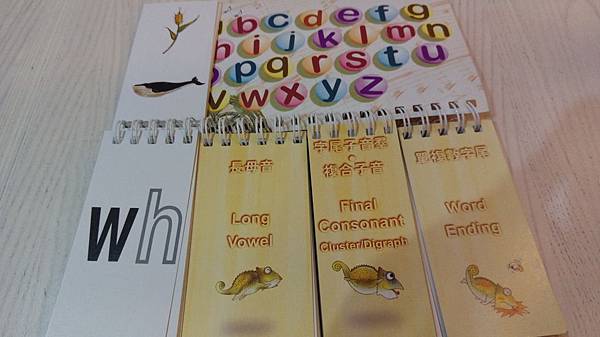 abcdefg
hijklmn
opqrstu
vwxyz
wh
長母音
Long
Vowel
字尾子音群
・
複合子音
Final
Consonant
Cluster/Digraph
單複數字尾
Word
Ending